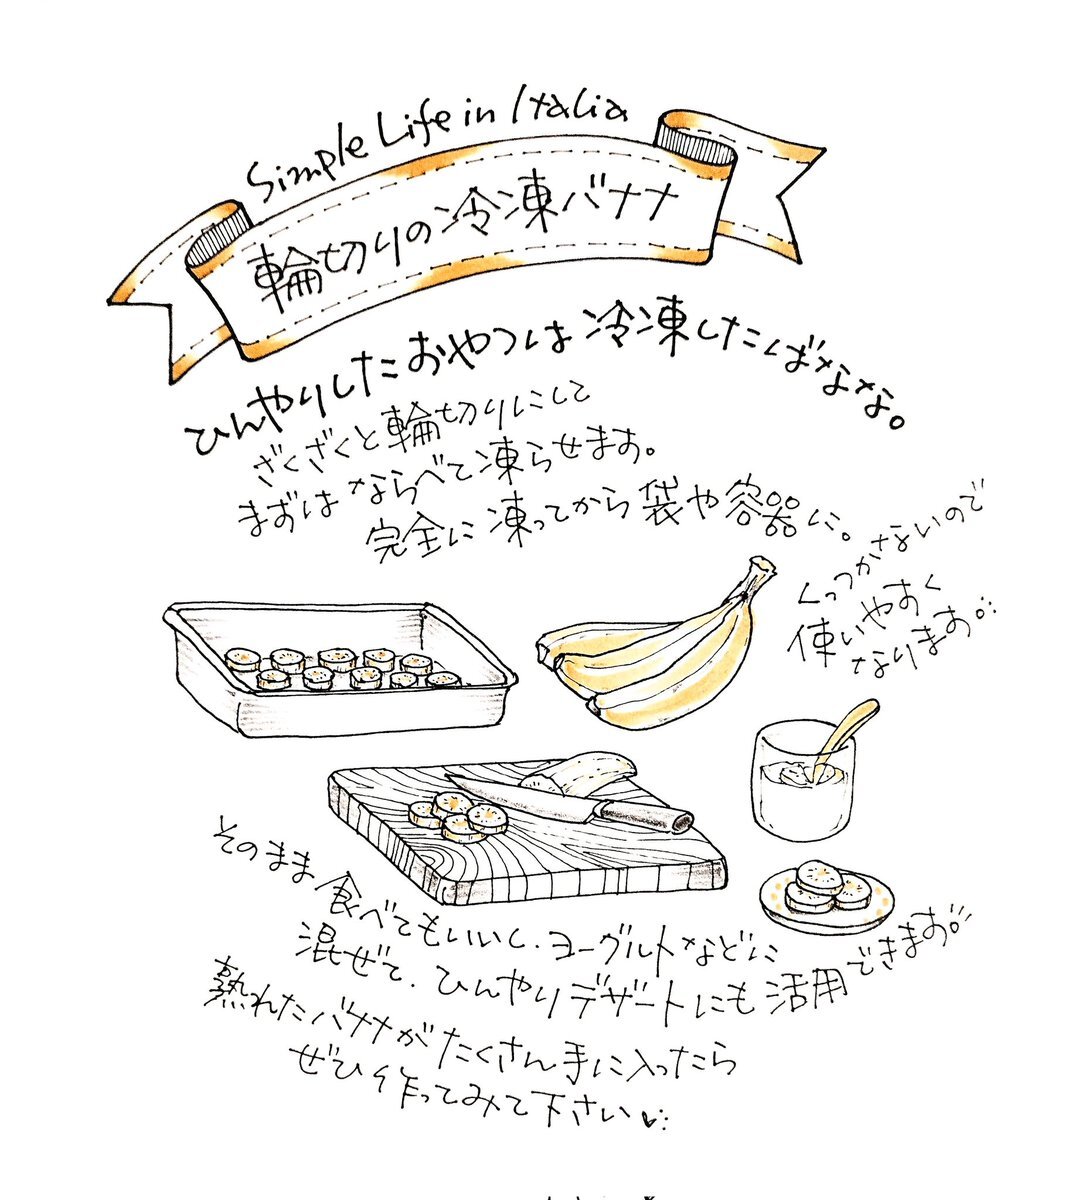 Simple Life in Italia
輪切りの冷凍バナナ
ひんやりしたおやつは冷凍したばなな。
ざくざくと輪切りにして
まずはならべて凍らせます。
完全に凍ってから袋や容器に。
くっつかないので
使いやすく
なります
そのまま食べてもいいし、ヨーグルトなどに
混ぜて、ひんやりデザートにも活用できます
熟れたバナナがたくさん手に入ったら
ぜひ作ってみて下さい